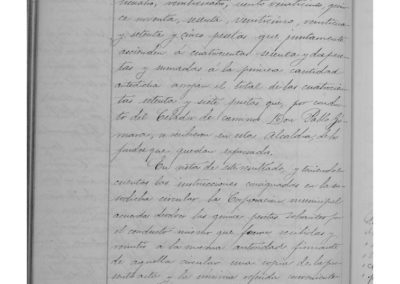 cuatro, veinticuatro, ciento veinticinco, quin
ce noventa, sesenta veinticinco, veinticinco
y setenta y cinco pesetas que juntamente
ascienden á cuatrocientas sesenta y dos pese
tas y sumadas á la primera cantidad
antedicha arroja el total de las cuatrocien
tas setenta y siete pesetas que, por conduc
to del Celador de Camino Don Pablo
se recibieron en esta Alcaldía, de los
fondos que quedan expresados.
En vista de este resultado y teniendo
cuenta las instrucciones consignadas en la su
sodicha circular la Corporación municipal
acuerda devolver las quince pesetas sobrantes por
el conducto mismo que fueron recibidas y
remitir á la misma autoridad firmante
de aquella circular una copia de la pre
sente acta y la nómina